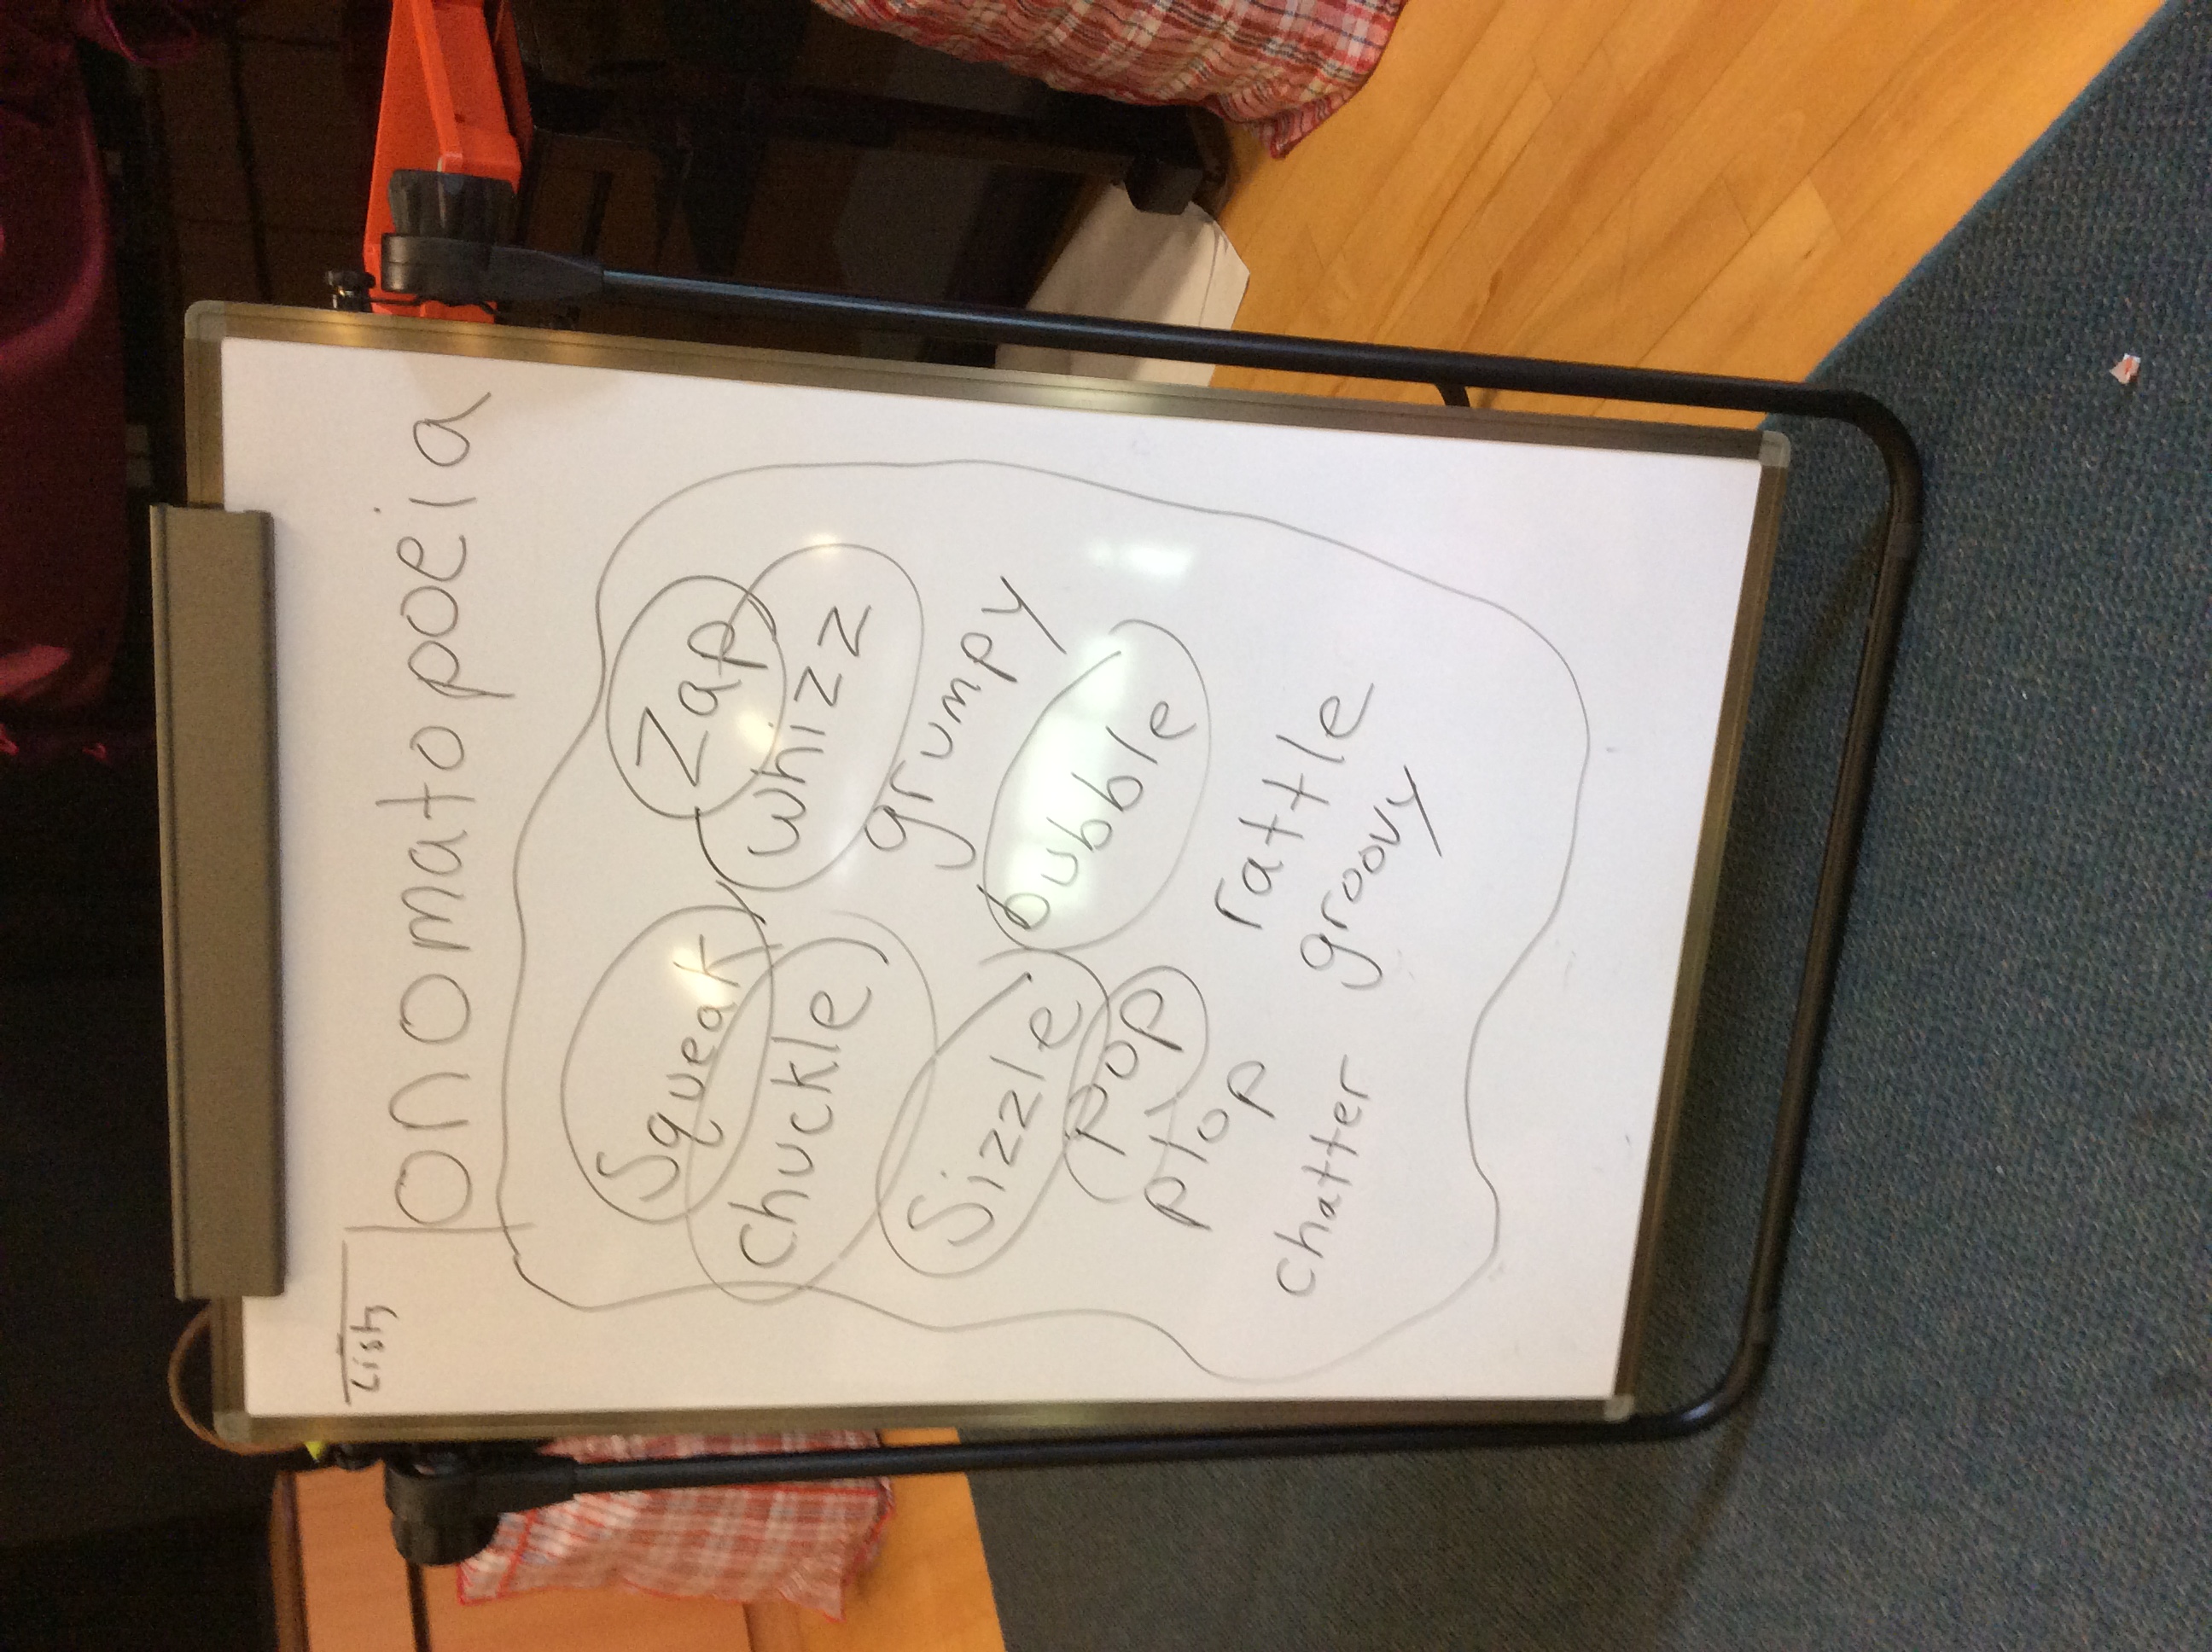 List
onomatopoeia
Squeak Zap
chuckle whizz
grumpy
Sizzle bubble
pop
plop rattle
chatter groovy